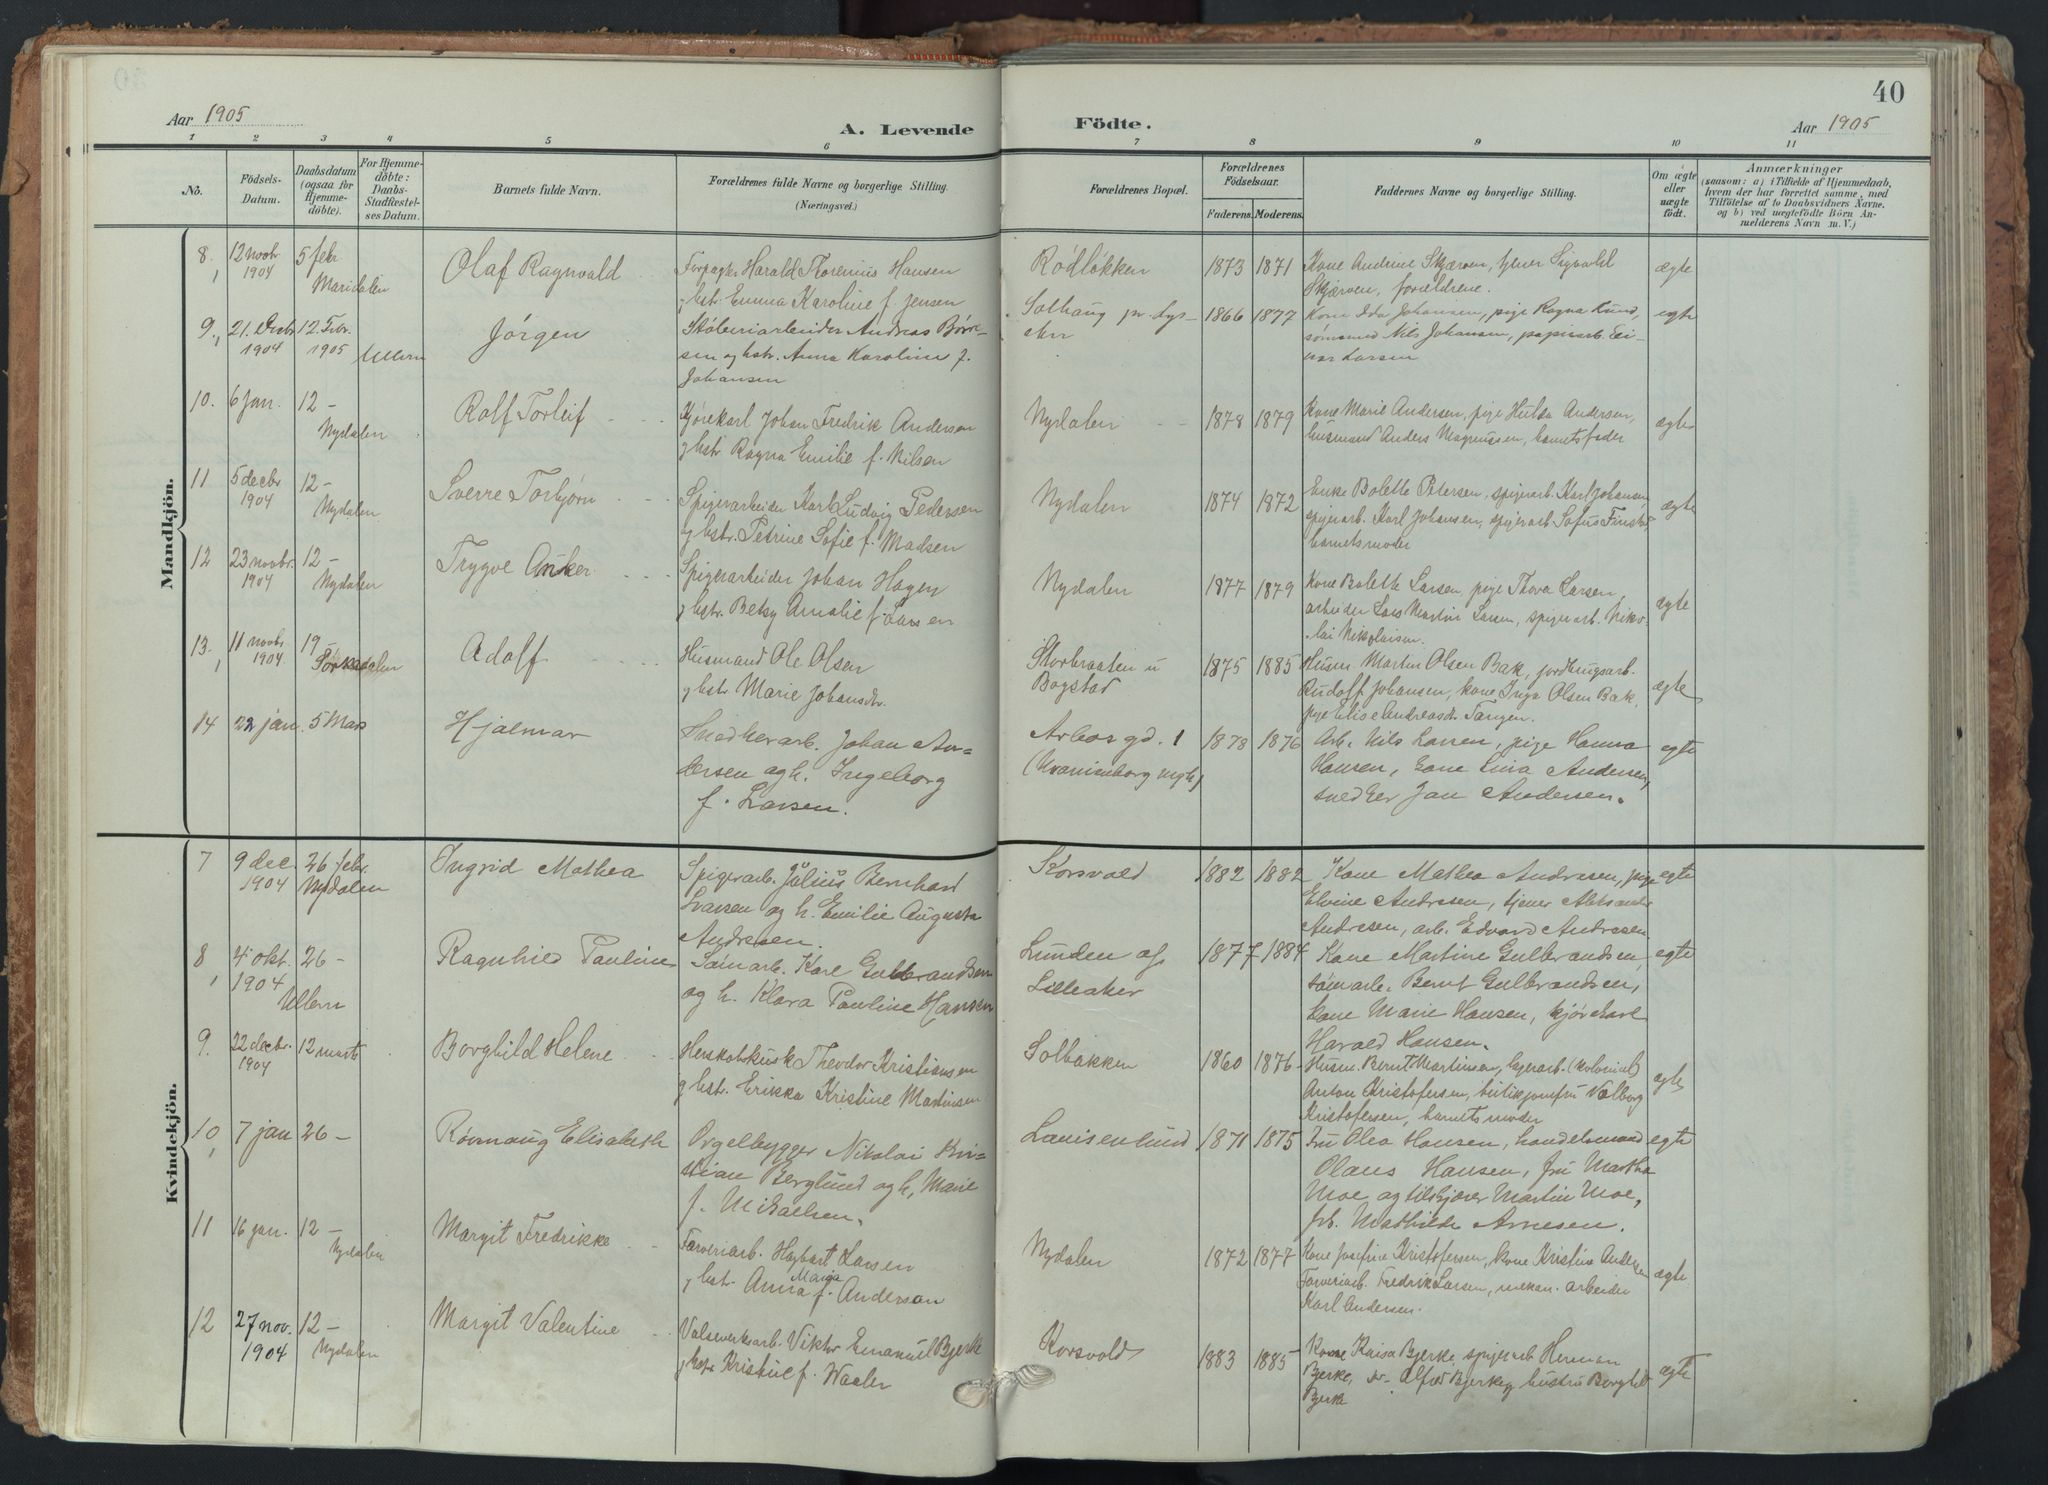 40
Aar 1905
A. Levende Födte.
Aar 1905
1 2 3 4 5 6 7 8 9 10 11
No.
Födsels-
Datum.
Daabsdatum
(ogsaa for
Hjemme-
döbte).
For Hjemme-
döbte:
Daabs-
Stadfæstel-
ses Datum.
Barnets fulde Navn.
Forældrenes fulde Navne og borgerlige Stilling.
(Næringsvei.)
Forældrenes Bopæl.
Forældrenes
Födselsaar.
Faderens. Moderens.
Faddernes Navne og borgerlige Stilling.
Om ægte
eller
uægte
födt.
Anmærkninger
(saasom: a) i Tilfælde af Hjemmedaab,
hvem der har forrettet samme, med
Tilföielse af to Daabsvidners Navne,
og b) ved uægtefödte Börn An-
melderens Navn m. V.)
Mandkjön.
8. 12 novbr 1904 5 febr Maridalen
Olaf Ragnvald
Forpagt. Harald Thorenius Hansen
g hstr. Emma Karoline f. Jensen
Rödløkken
1873 1871
Kone Andrine Skjærven, tjener Sigvald
Skjærven, forældrene.
ægte
9. 21. 1904 12. Febr. 1905 Ullern
Jörgen
Støberiarbeider Andreas Börre-
sen og hstr. Anna Karoline f.
Johansen
Solhaug pr. Lys-
aker
1866 1877
Kone Ida Johansen, pige Ragna Lund,
sømand Nils Johansen, papirarb. Ei-
nar Larsen
egte
10. 6 jan. 12 – Nydalen
Rolf Torleif
Kjørekarl Johan Fredrik Andersen
g hstr Ragna Emilie f. Nilsen
Nydalen
1878 1879
Kone Marie Andersen, pige Hulda Andersen,
husmand Anders Magnussen, barnets fader
ægte
11 5 decbr 1904 12 – Nydalen
Sverre Torbjørn
Spigerarbeider Karl Ludvig Pedersen
og hstr. Petrine Sofie f. Madsen
Nydalen
1874 1972
Enke Bolette Petersen, spigerarb. Karl Johansen,
spigerarb. Karl Johansen, spigerarb. Sofus Finstad
barnets moder
ægte
12 23 novbr. 1904 12 – Nydalen
Trygve Anker
Spigerarbeider Johan Hagen
g hstr. Betsy Amalie f. Larsen
Nydalen
1877 1879
Kone Bolette Larsen, pige Thora Larsen,
arbeider Lars Martin Larsen, spigerarb. Niko-
lai Nikolaisen.
ægte
13. 11 novbr 1904 19 – Sørkedalen
Adolf
Husmand Ole Olsen
g hstr. Marie Johansdr.
Storbraaten u
Bogstad
1875 1885
Husm. Martin Olsen Bak, jordbrugsarb.
Rudolf Johansen, kone Inga Olsen Bak,
pige Elise Andreasdr Tangen.
ægte
14 22 jan. 5 Mars
Hjalmar
Snedkerarb. Johan An-
dersen og h. Ingeborg
f. Larsen.
Arbos gd. 1
1878 1876
Arb. Nils Larsen, pige Hanna
Hansen, Kone Lina Andersen,
snedker Jan Andersen.
egte
Kvindekjön.
7 9 dec. 1904 26 febr. Nydalen
Ingrid Mathea
Spigerarb. Julius Bernhard
Larsen og h. Emilie Augusta
Andresen.
Korsvold
1882 1882
Kone Mathea Andresen, pige
Elvine Andresen, tjener
Andresen, arb. Edvard Andresen.
egte
8 4 okt. 1904 26 – Ullern
Ragnhild Pauline
Sømarb. Karl Gulbrandsen
og h. Klara Pauline Hansen
Lunden af
Lilleaker
1877 1884
Kone Martine Gulbrandsen,
sømarb. Bernt Gulbrandsen,
Kone Marie Hansen, kjørekarl
Harald Hansen.
egte
9. 22 decbr. 1904 12 marts
Borghild Helene
Herskabskusk Theodor Kristiansen
g hstr. Erikka Kristine Martinsen
Solbakken
1860 1876
Husm. Bernt Martinsen, lagerarb. (kolonial)
Anton Kristofersen, butikjomfru Valborg
Kristofersen, barnets moder
ægte
10 7 jan 26 –
Rövnaug Elisabeth
Orgelbygger Nikolai Kri-
stian Berglund og h. Marie
f. Mikaelsen.
Louisenlund
1871 1875
Fru Olea Hansen, handelsmand
Olaus Hansen, fru Martha
Moe og tilskjærer Martin Moe,
frk. Mathilde Arnesen.
egte
11 16 jan. 12 – Nydalen
Margit Fredrikke
Farveriarb. Herbart Larsen
g hstr. Anna Maria f. Anderson
Nydalen
1872 1877
Kone Josefine Kristofersen, kone Kristine Andersen
Farveriarb. Fredrik Larsen, mekan. arbeider
Karl Andersen.
ægte
12 27 nov. 1904 12 – Nydalen
Margit Valentine
Valseverksarb. Viktor Emanuel Bjerke
g hstr Kristine f. Waaler
Korsvold
1883 1885
Kone Kaisa Bjerke, spigerarb Herman
Bjerke, Alfred Bjerke g hustru Borghild
Bjerke
ægte